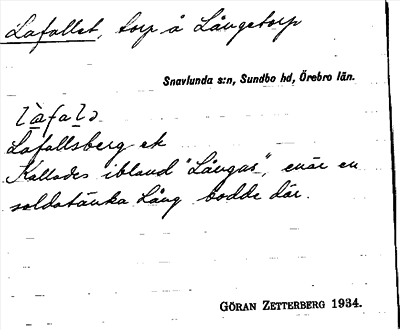 Lafallet, torp å Långetorp
Snavlunda s:n, Sundbo hd, Örebro län.
làfalɔ
Lafallsberg ek
Kallades ibland "Långas", enär en
soldatänka Lång bodde där.
GÖRAN ZETTERBERG 1934.